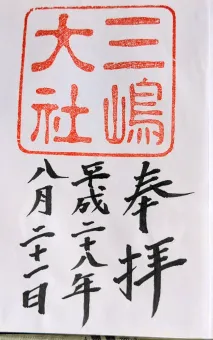 三嶋
大社
奉拝
平成二十八年
八月二十一日